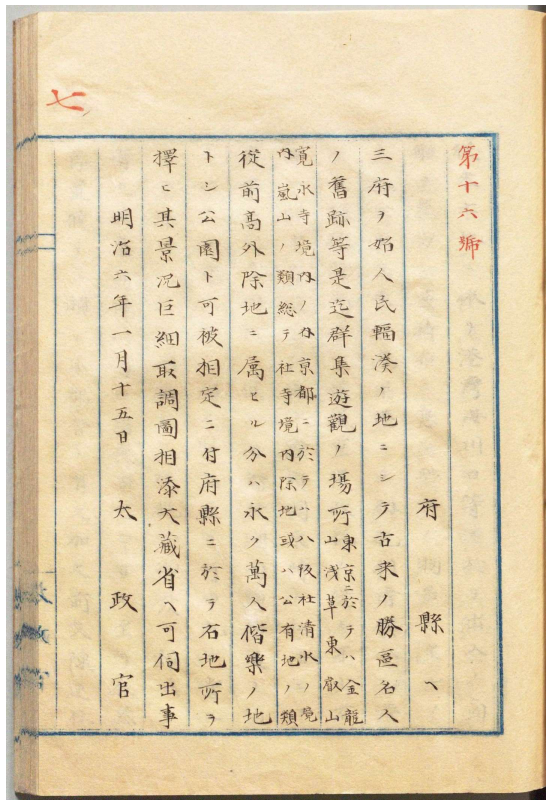 七
第十六號
府縣ヘ
三府ヲ始人民輻湊ノ地ニシテ古来ノ勝區名人
ノ舊跡等是迄群集遊觀ノ場所東京ニ於テハ金龍
山浅草東叡山
寛永寺境内ノ京都ニ於テハ八坂社清水ノ境
内嵐山ノ類総テ社寺境内除地或ハ公有地ノ類
從前高外除地ニ属セル分ハ永ク萬人偕樂ノ地
トシ公園ト可被相定ニ付府縣ニ於テ右地所ヲ
擇ヒ其景況巨細取調圖相添大藏省ヘ可伺出事
明治六年一月十五日 太政官